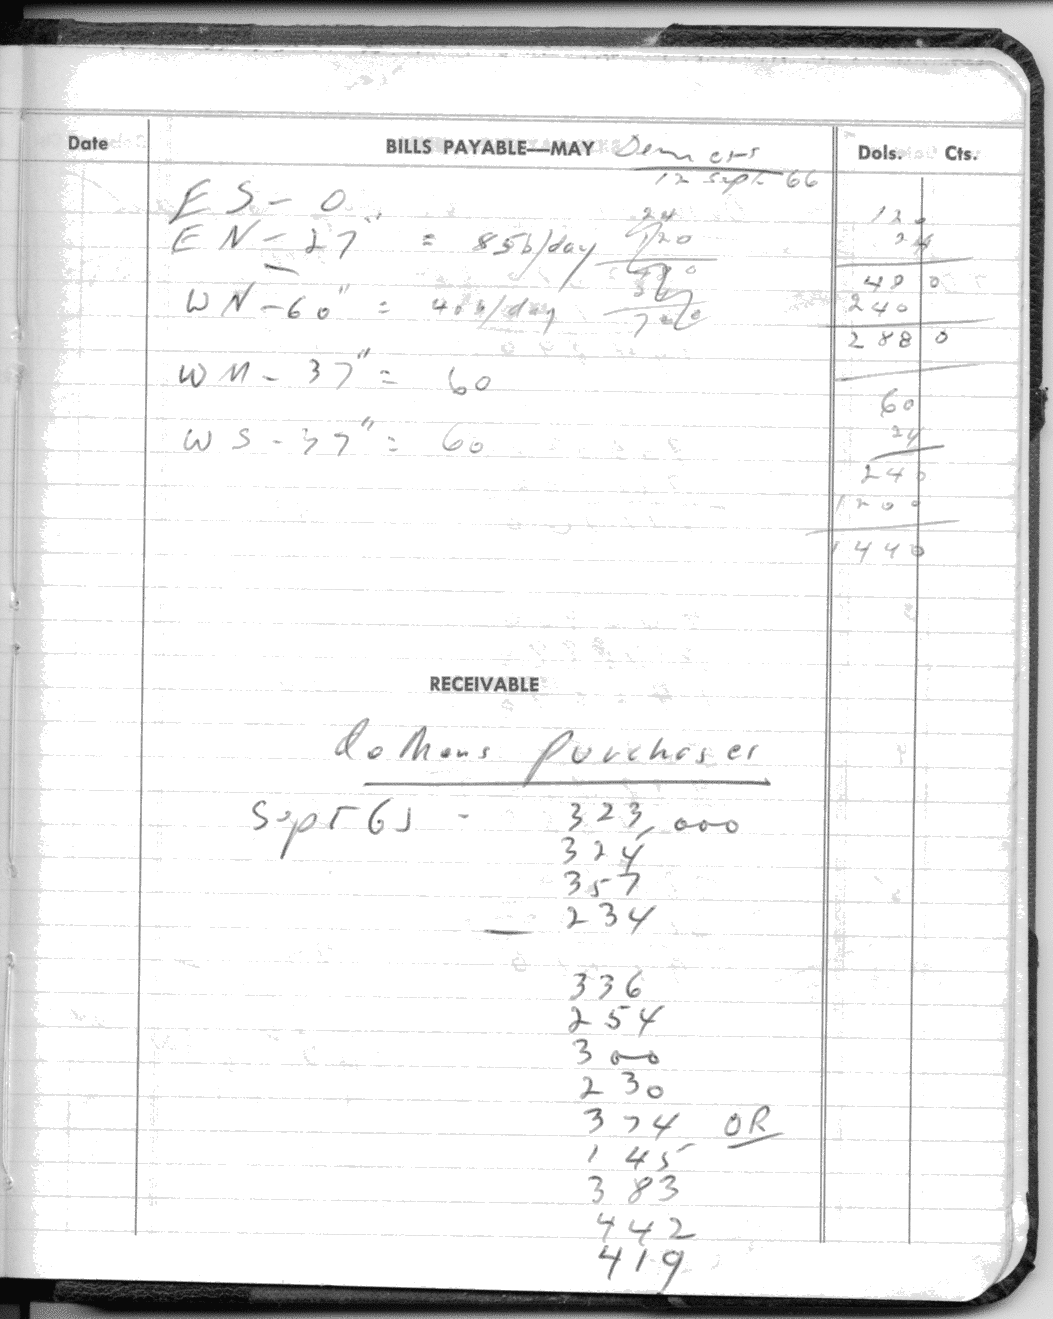 Date BILLS PAYABLE—MAY Demers Dols. Cts.
12 Sept. 66
ES - 0
EN - 27" = 85b/day
24
120
480
720
WN - 60" = 40b/day
WM - 37" = 60
WS - 37" = 60
120
24
480
240
2880
60
24
240
1200
1440
RECEIVABLE
purchases
Sept 65 - 323,000
324
357
234
336
254
300
230
374 OR
145
383
442
419